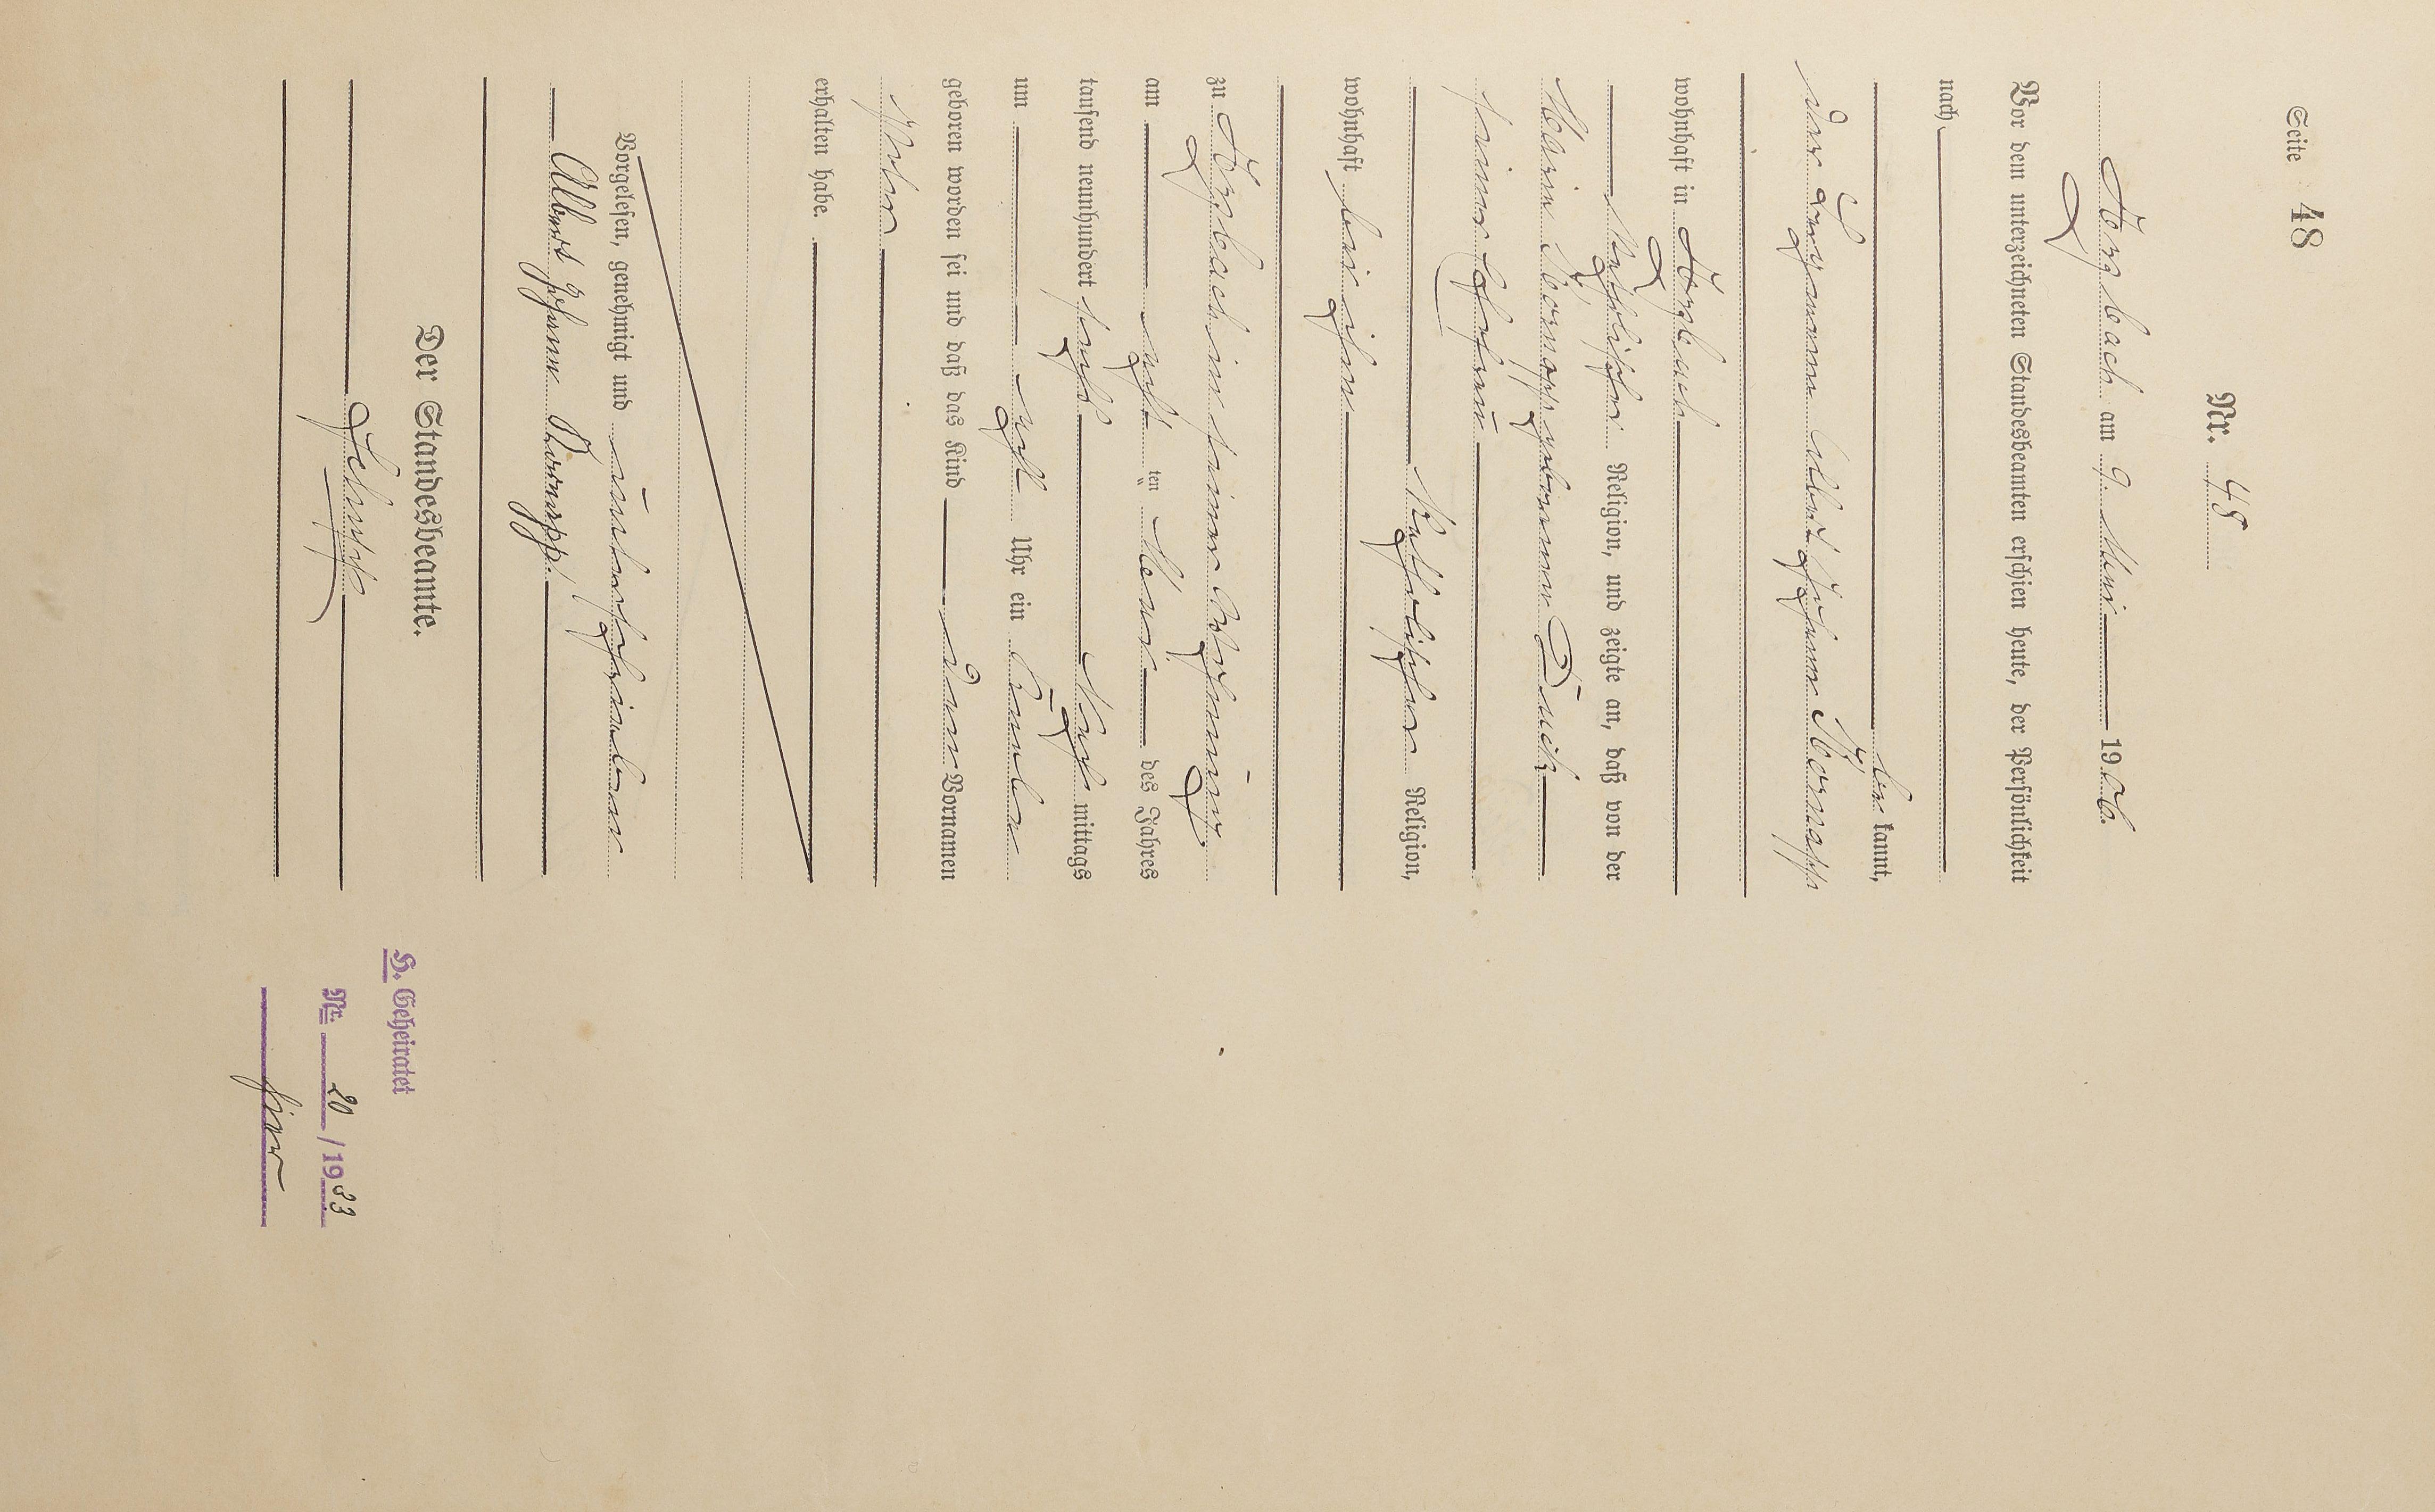 Seite 48
Nr. 48
Forbach am 9. Mai 1906.
Vor dem unterzeichneten Standesbeamten erschien heute, der Persönlichkeit
nach
be kannt,
der Bergmann Albert Johann
wohnhaft in Forbach
katholischer Religion, und zeigte an, daß von der
Maria geborenen
seiner Ehefrau
katholischer Religion,
wohnhaft bei ihm
zu Forbach in seiner Wohnung
am acht ten Mai des Jahres
tausend neunhundert sechs Nach mittags
um acht Uhr ein Knabe
geboren worden sei und daß das Kind den Vornamen
Peter
erhalten habe.
Vorgelesen, genehmigt und unterschrieben
Albert Johann
Der Standesbeamte.
H. Geheiratet
Nr. 20/1933
hier